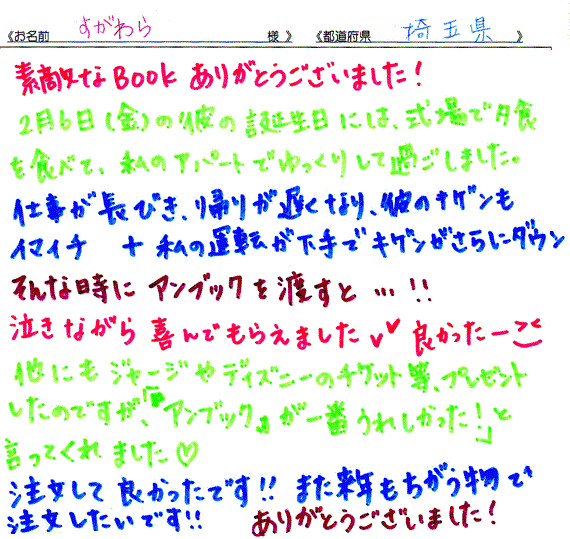 《お名前 すがわら 様 》 《都道府県 埼玉県 》
素敵なBookありがとうございました！
2月6日(金)の彼の誕生日には、式場で夕食
を食べて、私のアパートでゆっくりして過ごしました。
仕事が長びき、帰りが遅くなり、彼のキゲンも
イマイチ ＋ 私の運転が下手でキゲンがさらにダウン
そんな時に アンブックを渡すと …!!
泣きながら 喜んでもらえました 良かったー
他にもジャージやディズニーのチケット等、プレゼント
したのですが、「『アンブック』が一番うれしかった！」と
言ってくれました♡
注文して良かったです!! また来年もちがう物で
注文したいです!! ありがとうございました！